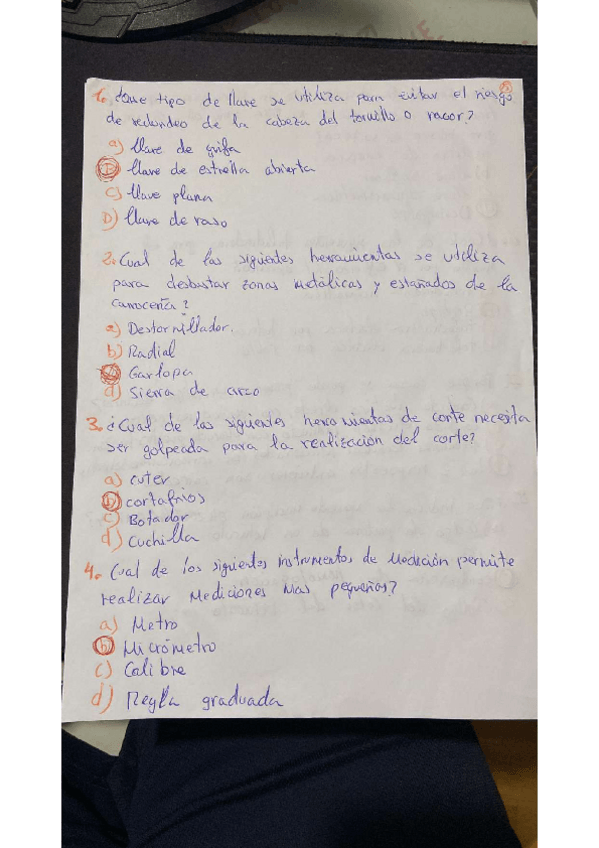 1. ¿Que tipo de llave se utiliza para evitar el riesgo
de redondeo de la cabeza del tornillo o racor?
a) llave de grifa
b) llave de estrella abierta
c) llave plana
D) llave de vaso
2. Cual de las siguientes herramientas se utiliza
para desbastar zonas metálicas y estañados de la
carrocería?
a) Destornillador.
b) Radial
c) Garlopa
d) Sierra de arco
3. ¿Cual de las siguientes herramientas de corte necesita
ser golpeada para la realización del corte?
a) cuter
b) cortafrios
c) Botador
d) Cuchilla
4. Cual de los siguientes instrumentos de Medición permite
realizar Mediciones Mas pequeños?
a) Metro
b) Micrómetro
c) Calibre
d) Regla graduada